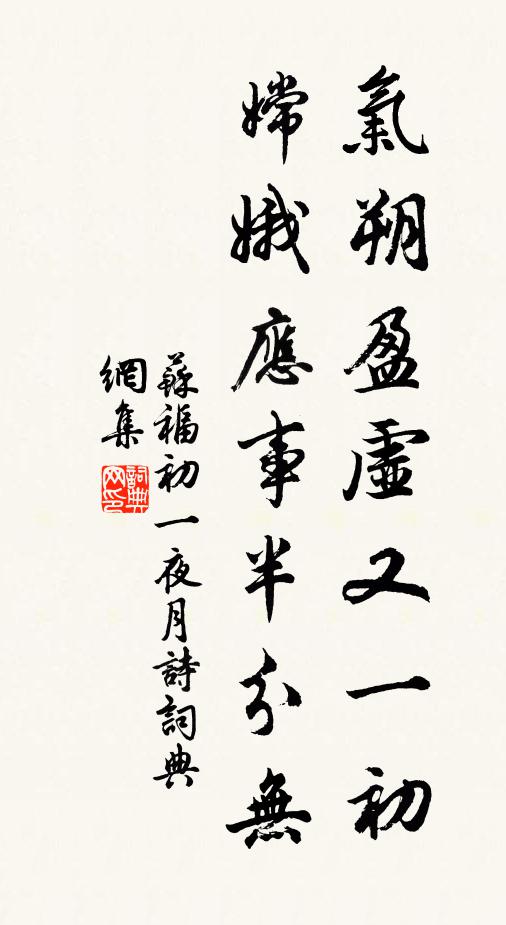 氣朔盈虛又一初
嫦娥應事半分無
蘇福初一夜月詩詞典
網集
詞典網印